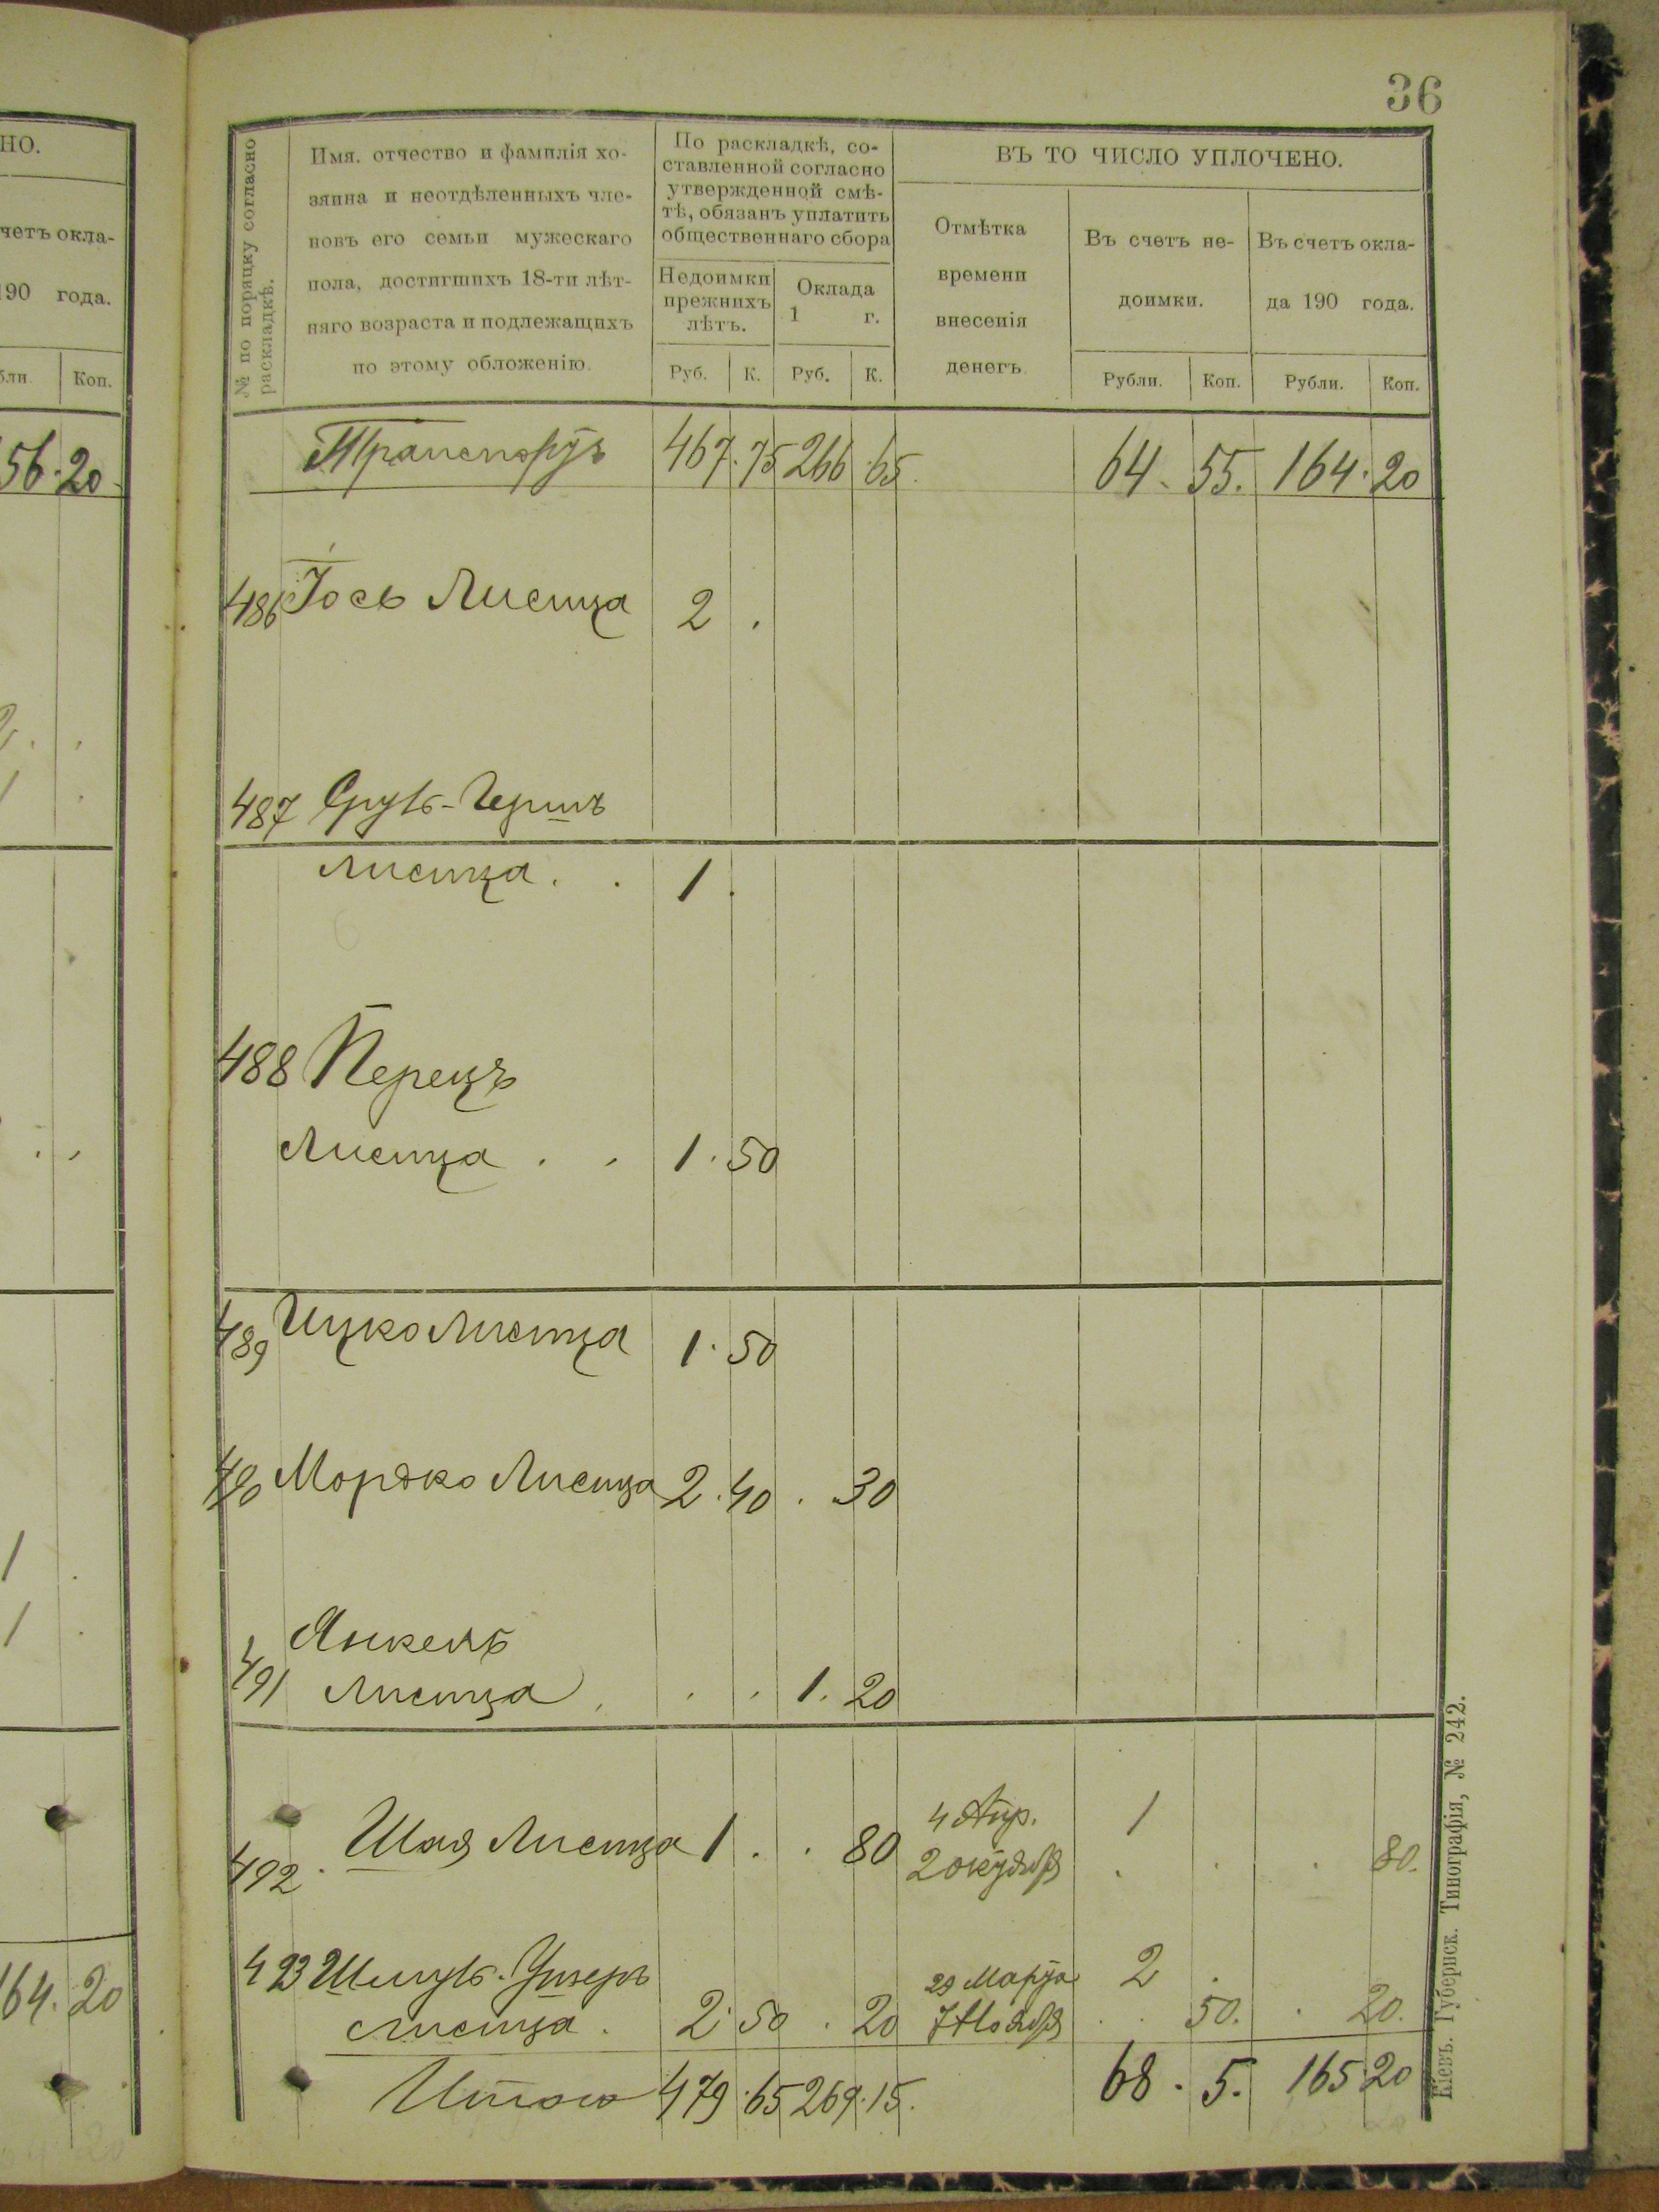 НО.
четъ окла-
190 года.
бли. Коп.
56. 20.
2. .
1 .
1 .
1 .
164. 20
36
№ по порядку согласно раскладкѣ.
Имя. отчество и фамилія хо-
зяина и неотдѣленныхъ чле-
новъ его семьи мужескаго
пола, достигшихъ 18-ти лѣт-
няго возраста и подлежащихъ
по этому обложенію.
По раскладкѣ, со-
ставленной согласно
утвержденной смѣ-
тѣ, обязанъ уплатить
общественнаго сбора
Недоимки
прежнихъ
лѣтъ.
Оклада
1 г.
Руб. К. Руб. К.
ВЪ ТО ЧИСЛО УПЛОЧЕНО.
Отмѣтка
времени
внесенія
денегъ.
Въ счетъ не-
доимки.
Въ счетъ окла-
да 190 года.
Рубли. Коп. Рубли. Коп.
Транспортъ 467. 75 266. 65. 64. 55. 164. 20
486 Іось Лисица 2 .
487 Сруль-Гершъ
Лисица . . 1 .
488 Перецъ
Лисица . . 1. 50
489 Ицко Лисица 1. 50
490 Мордко Лисица 2. 40 . 30
491 Янкель
Лисица . . . 1. 20
4 Апр. 1
492. Шая Лисица 1 . . 80 2 октября . . . 80.
493 Шмуль-Ушеръ 29 Марта 2 .
Лисица . 2. 50 . 20 7 Ноября . . 50. . 20.
Итого 479. 65 269. 15. 68. 5. 165. 20
Кіевъ. Губернск. Типографія, № 242.